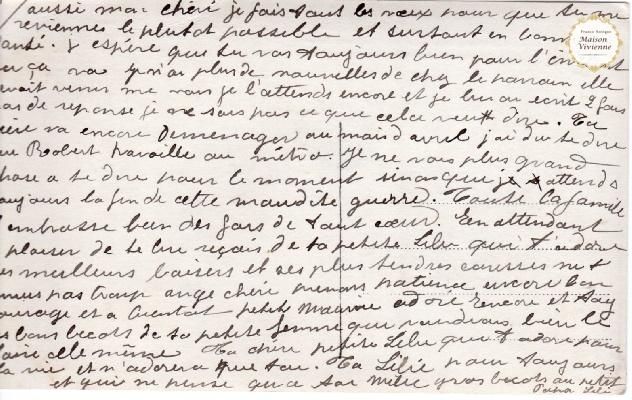 aussi mar chéri je fais tout les vœux pour que tu me
reviennes le plutot possible et surtout en bonne
santé. J espère que tu vas toujours bien pour l'
ça va je n'ai plus de nouvelles de chez le parrain elle
venir me voir je l'attends encore et je lui ai écrit 2 fois
pas de reponse je ne sais pas ce que cela veut dire. Ta
va encore Demenager au mois d avril j'ai du te dire
Robert travaille au métro. Je ne vois plus grand
chose a te dire pour le moment sinon que je t attends
toujours la fin de cette maudite guerre. Toute la famille
t'embrasse bien des fois de tout cœur. En attendant
plaisir de te lire reçois de ta petite Lilie qui t'adore
ses meilleurs baisers et ses plus tendres caresses ne t
pas trop ange chéri prenons patience encore bon
courage et a bientot petit adoré encore et
bons becots de ta petite femme qui voudrais bien le
faire elle même Ta chère petite Lilie qui t adore pour
la vie et n'adorera que toi. Ta Lilie pour toujours
et qui ne pense qu a toi mille gros becots au petit
Papa Lilie
France Antique
Maison
Vivienne